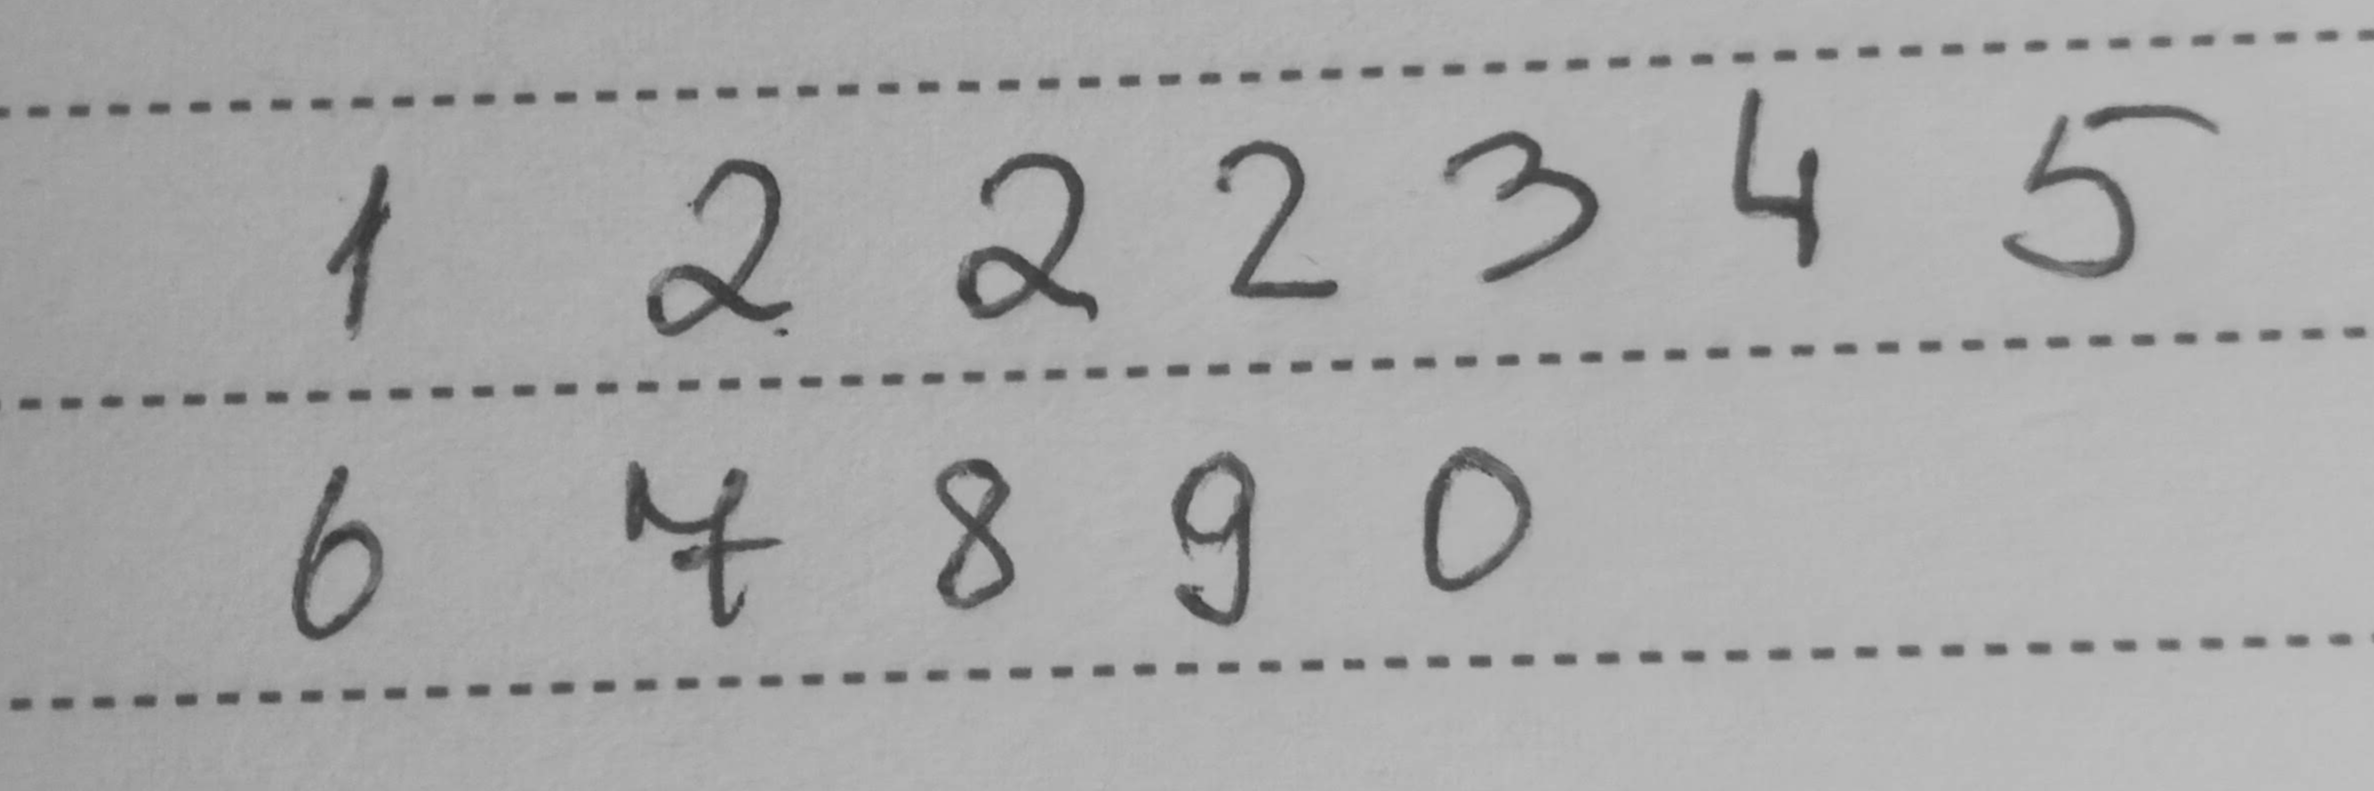 1 2 2 2 3 4 5
6 7 8 9 0